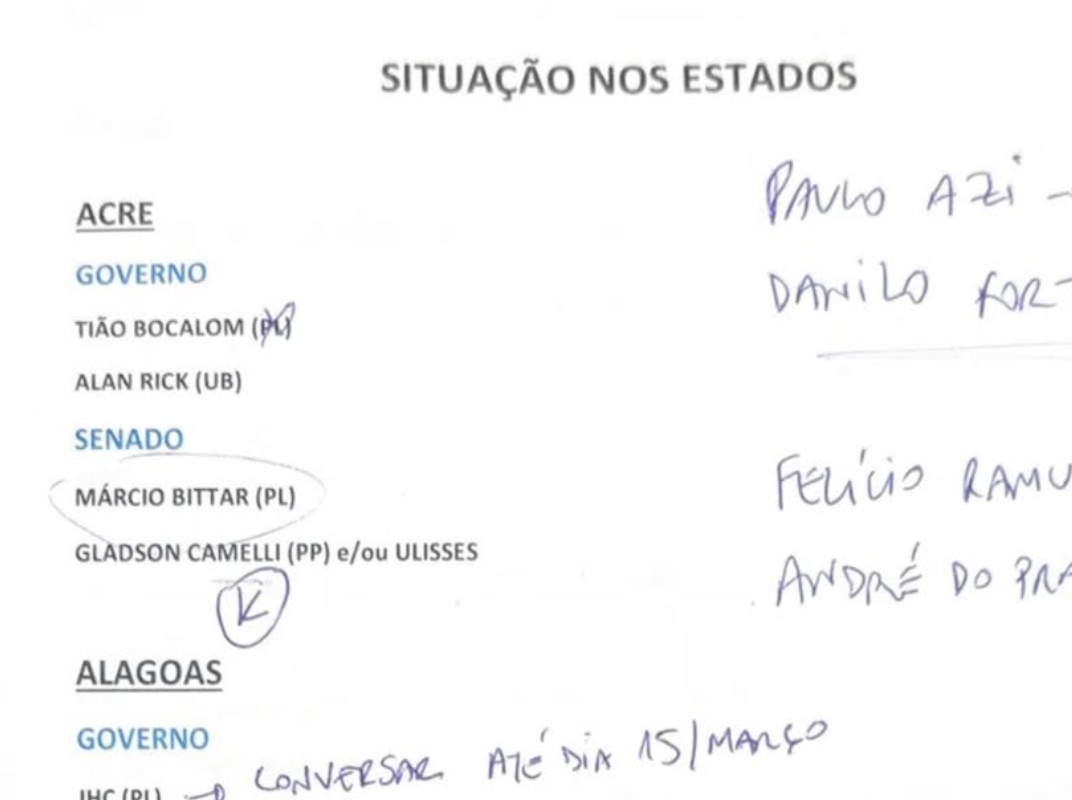 SITUAÇÃO NOS ESTADOS
PAULO AZI -
ACRE
GOVERNO
DANILO FORT
TIÃO BOCALOM (PL)
ALAN RICK (UB)
SENADO
FELÍCIO RAMU
MÁRCIO BITTAR (PL)
GLADSON CAMELLI (PP) e/ou ULISSES
ANDRÉ DO PRA
K
ALAGOAS
GOVERNO
CONVERSAR ATÉ DIA 15/MARÇO
JHC (PL) →